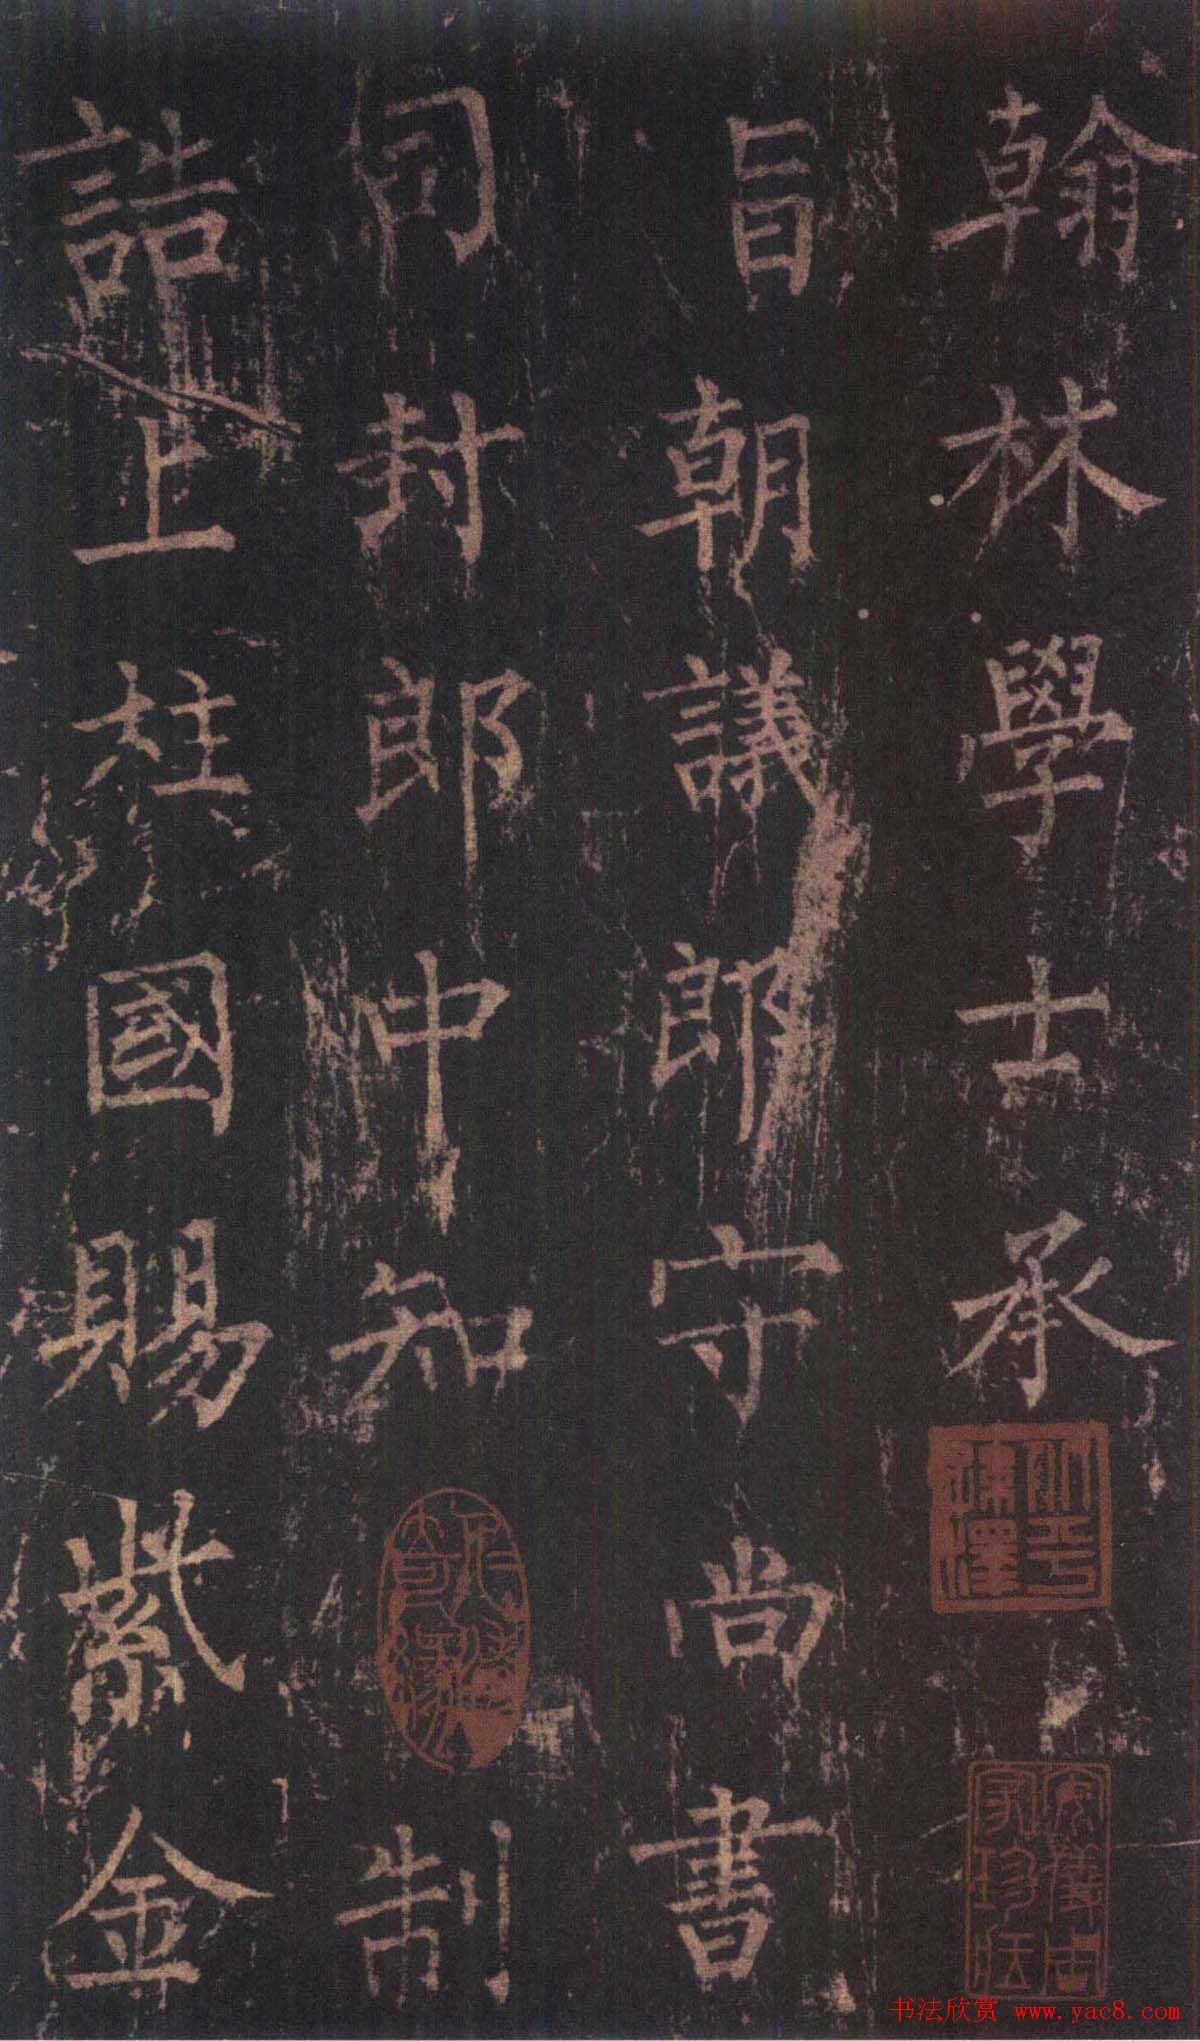 翰林學士承
旨朝議郎守尚書
司封郎中知制
誥上柱國賜紫金
书法欣赏 www.yac8.com